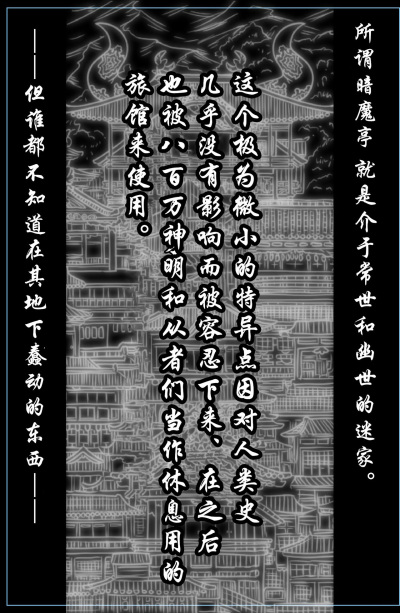 所谓暗魔亭 就是介于常世和幽世的迷家。
这个极为微小的特异点因对人类史
几乎没有影响而被容忍下来、在之后
也被八百万神明和从者们当作休息用的
旅馆来使用。
——但谁都不知道在其地下蠢动的东西——